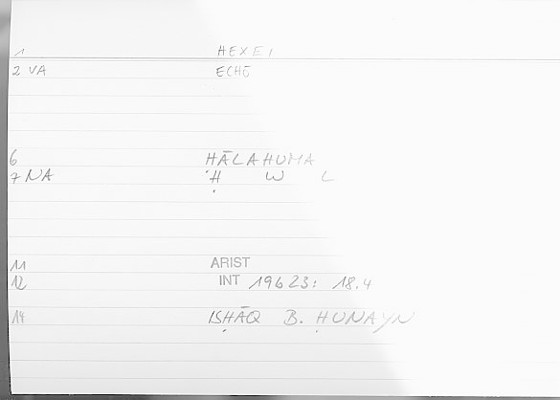 1 HEXEI
2 VA ECHŌ
6 HĀLAHUMA
7 NA Ḥ W L
11 ARIST
12 INT 19623: 18.4
14 ISḤĀQ B. ḤUNAYN